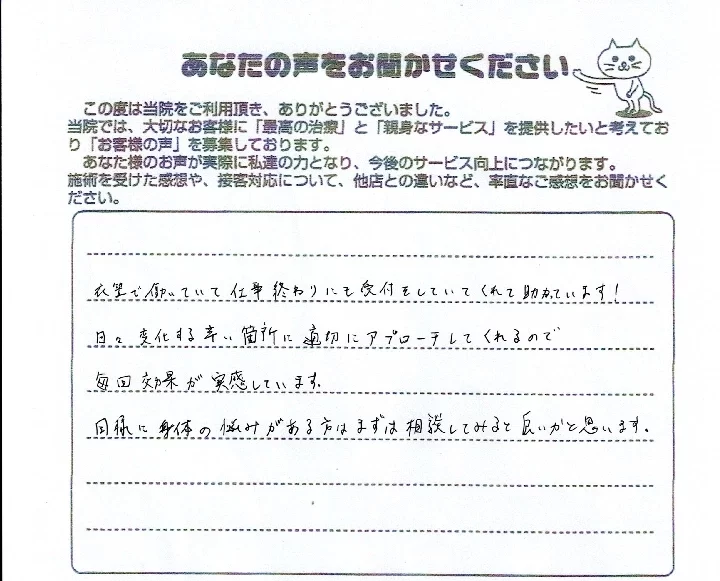 あなたの声をお聞かせください
この度は当院をご利用頂き、ありがとうございました。
当院では、大切なお客様に「最高の治療」と「親身なサービス」を提供したいと考えてお
り「お客様の声」を募集しております。
あなた様のお声が実際に私達の力となり、今後のサービス向上につながります。
施術を受けた感想や、接客対応について、他店との違いなど、率直なご感想をお聞かせく
ださい。
で働いていて仕事終わりにも受付をしていてくれて助かっています!
日々変化する辛い箇所に適切にアプローチしてくれるので
毎回効果が実感しています。
同様に身体の悩みがある方はまずは相談してみると良いかと思います。